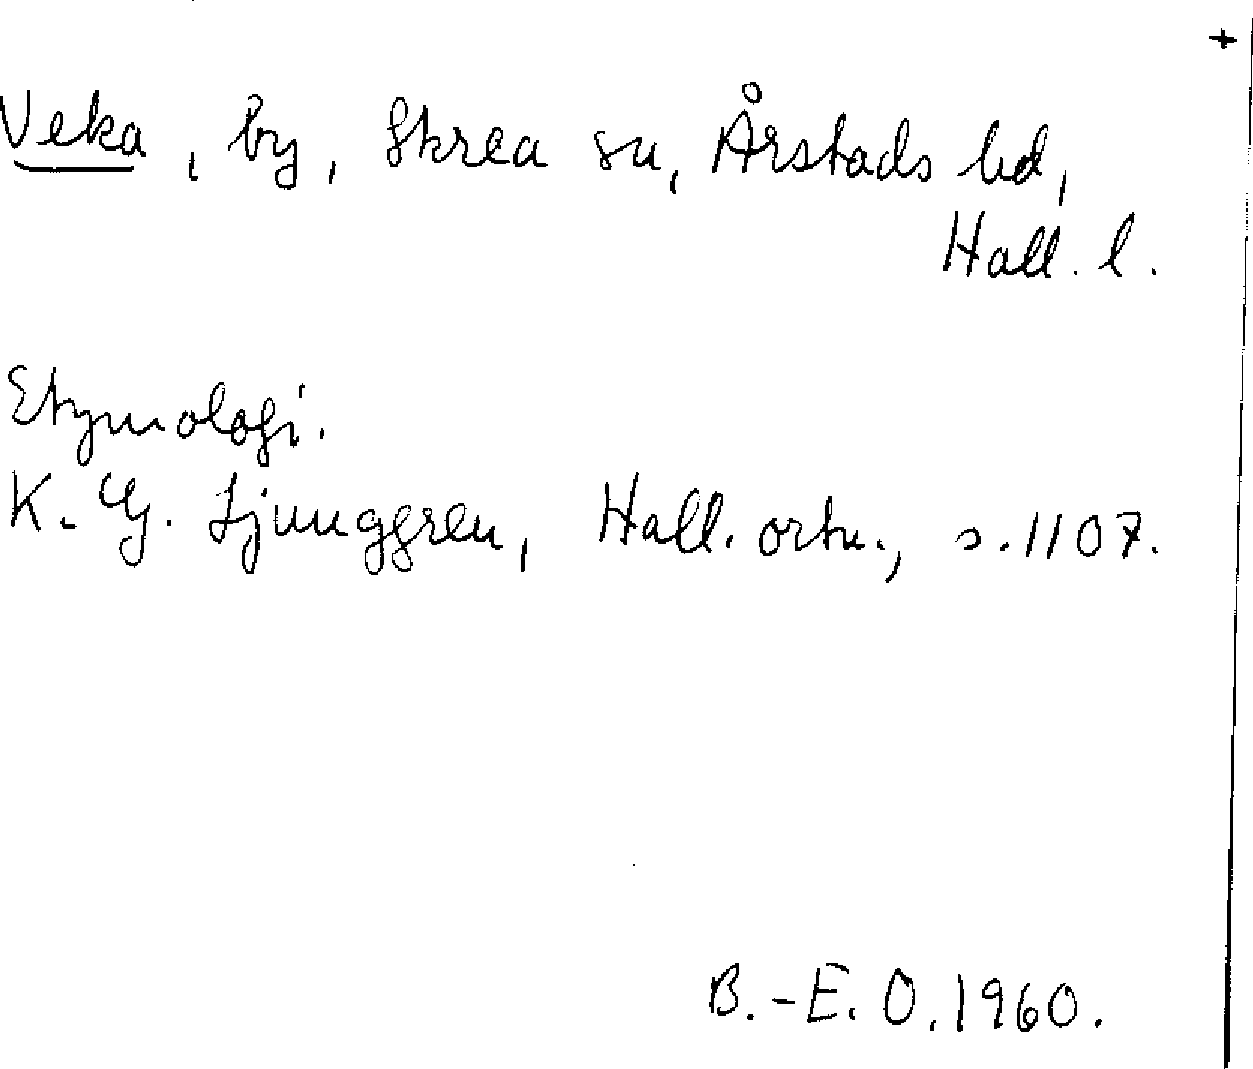 +
Veka, by, Skrea sn, Årstads hd,
Hall. l.
Etymologi.
K. G. Ljunggren, Hall. ortn., s. 1107.
B.-E. O. 1960.